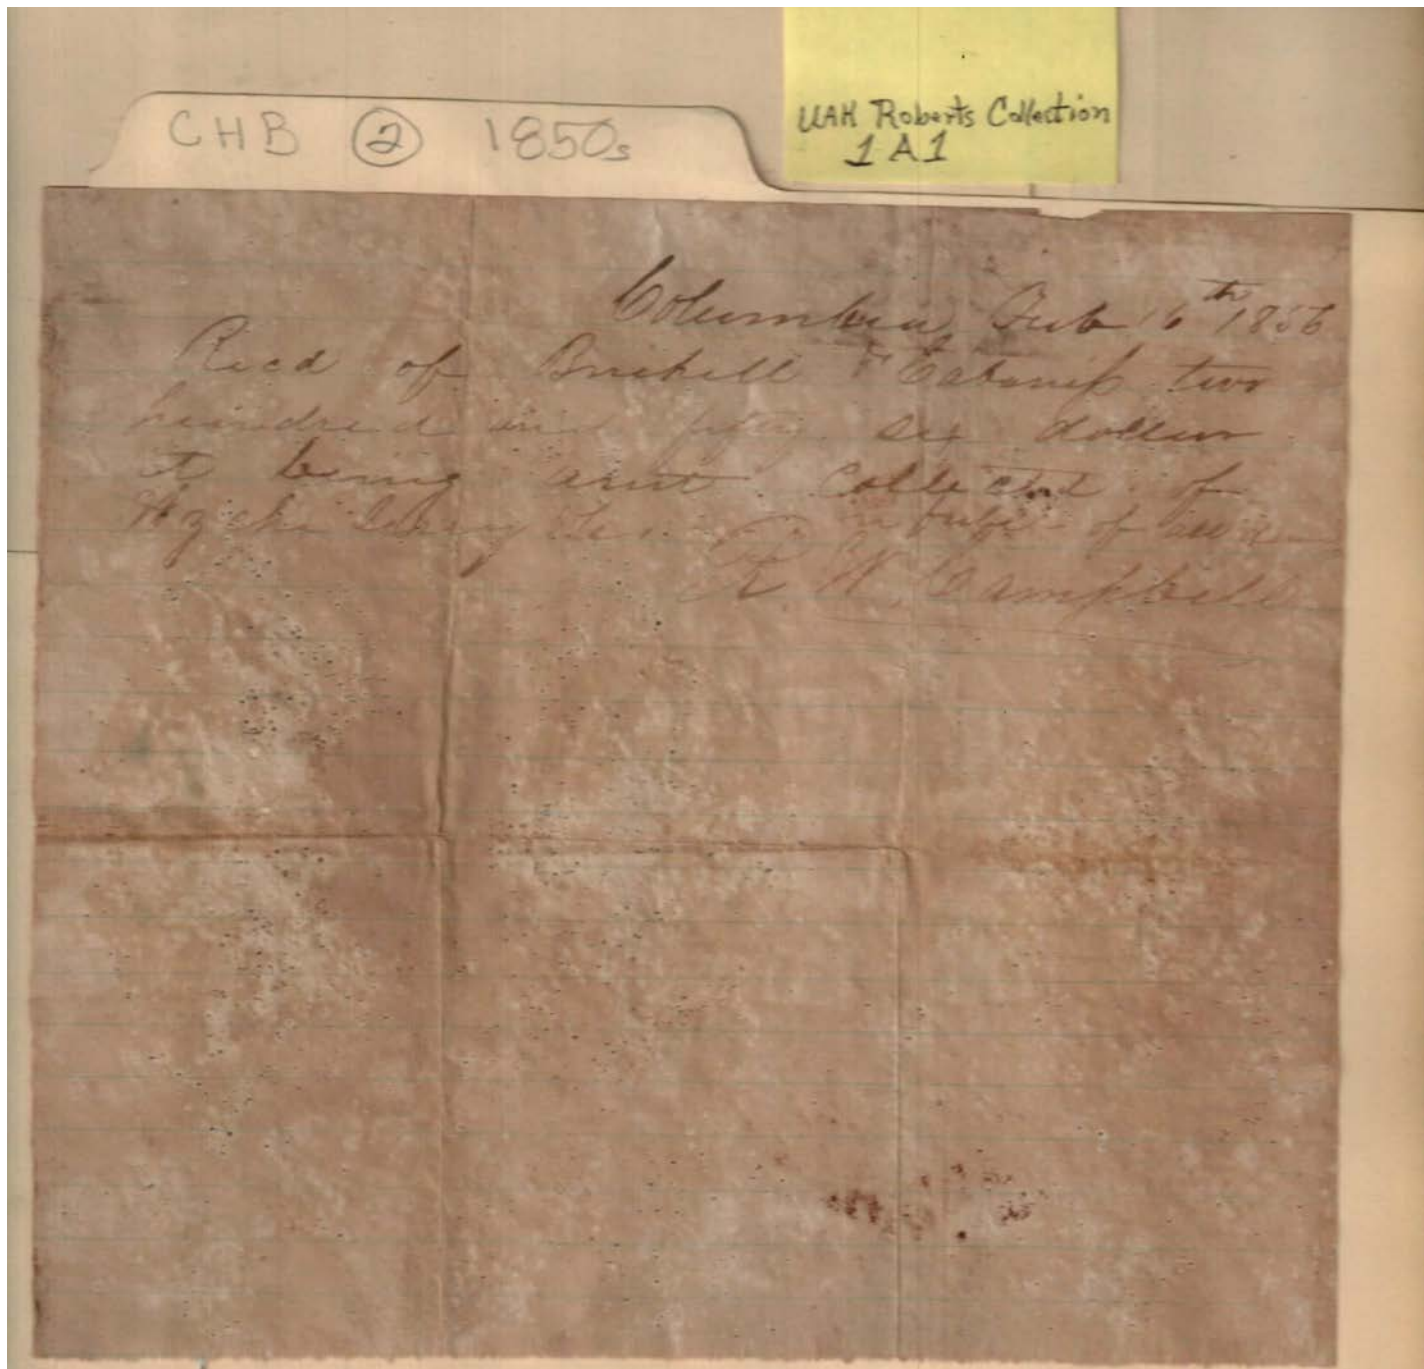 CHB 2 1850s
UAH Roberts Collection
1A1
Columbia, Feb 16th 1856
Recd of Brickell & Cabaniss two
hundred and fifty six dollars
it being amt collected of
of
R. W. Campbell